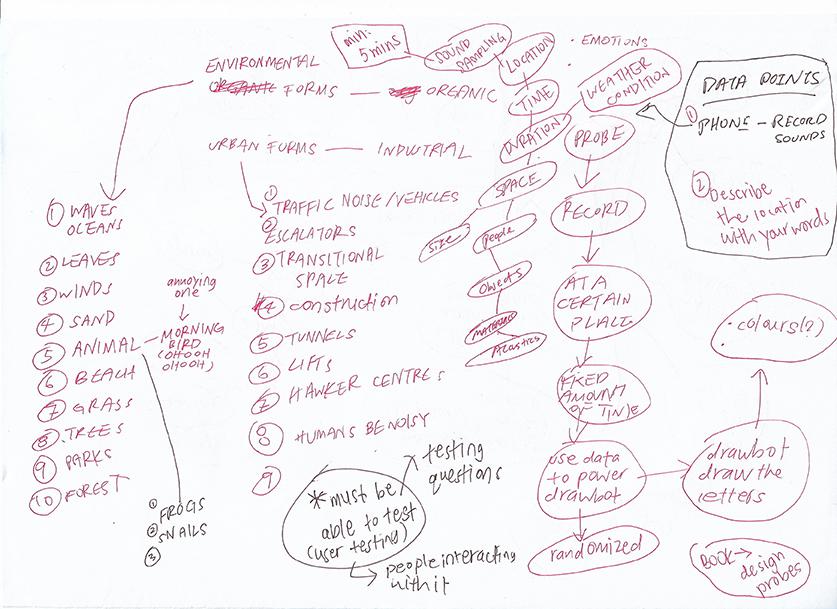 min:
5mins
SOUND
SAMPLING
LOCATION
• EMOTIONS
TIME
WEATHER
CONDITION
DURATION
SPACE
Size
people
Objects
MATERIALS
Acoustics
ENVIRONMENTAL
ORGANIC FORMS — ORGANIC
URBAN FORMS — INDUTRIAL
① WAVES
OCEANS
② LEAVES
③ WINDS
④ SAND
⑤ ANIMAL — MORNING
BIRD
(OHOOH
OHOOH)
annoying
one
⑥ BEACH
⑦ GRASS
⑧ TREES
⑨ PARKS
⑩ FOREST
① FROGS
② SNAILS
③
① TRAFFIC NOISE/VEHICLES
② ESCALATORS
③ TRANSITIONAL
SPACE
④ construction
⑤ TUNNELS
⑥ LIFTS
⑦ HAWKER CENTRES
⑧ HUMANS BE NOISY
⑨
*must be
able to test
(user testing)
testing
questions
people interacting
with it
PROBE
RECORD
AT A
CERTAIN
PLACE
FIXED
AMOUNT
OF TIME
use data
to power
drawbot
randomized
drawbot
draw the
letters
• colours(?)
BOOK →
design
probes
DATA POINTS
① PHONE — RECORD
SOUNDS
② Describe
the location
with your words